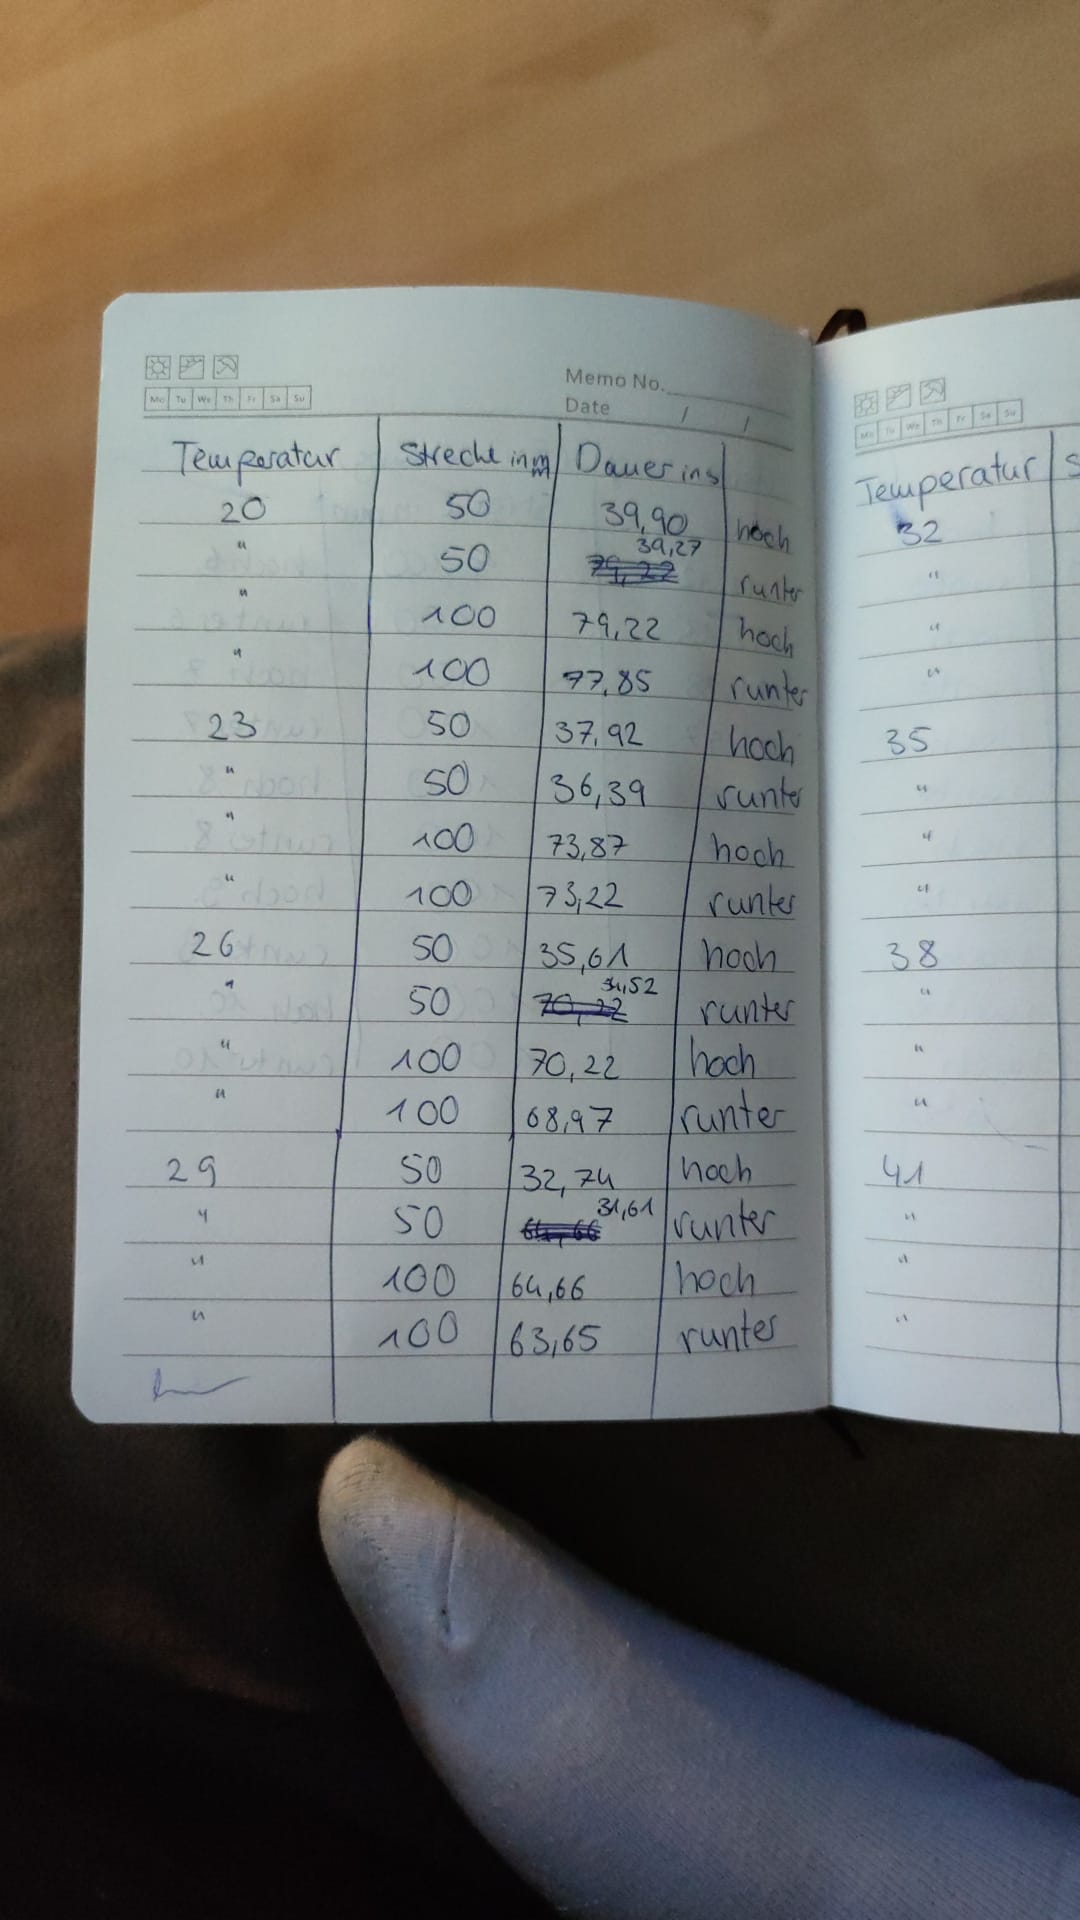 Memo No.
Mo Tu We Th Fr Sa Su
Date / /
Temperatur Strecke in m Dauer in s
20 50 39,90 hoch
" 50 39,27 runter
" 100 79,22 hoch
" 100 77,85 runter
23 50 37,92 hoch
" 50 36,39 runter
" 100 73,87 hoch
" 100 73,22 runter
26 50 35,61 hoch
" 50 70,22 34,52 runter
" 100 70,22 hoch
" 100 68,97 runter
29 50 32,74 hoch
" 50 64,66 31,61 runter
" 100 64,66 hoch
" 100 63,65 runter
Mo Tu We Th Fr Sa Su
Temperatur S
32
"
"
"
35
"
"
"
38
"
"
"
41
"
"
"